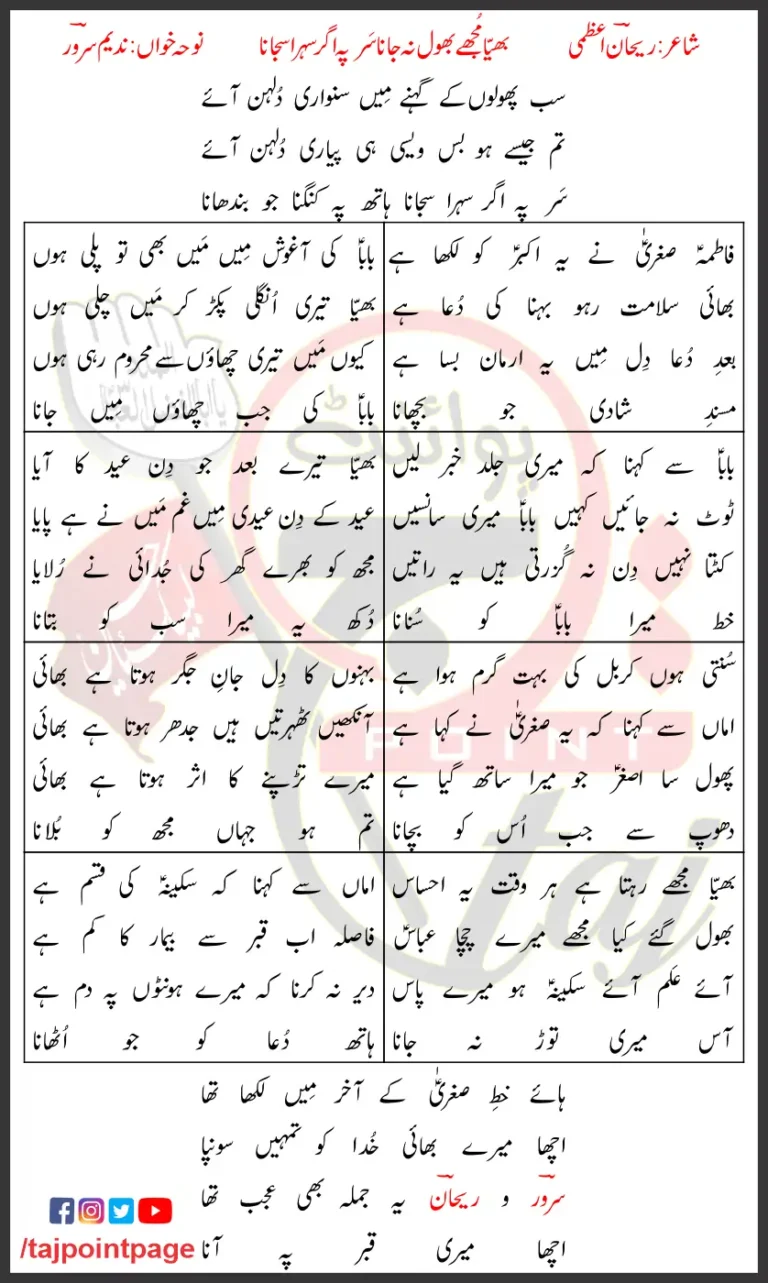 شاعر: ریحان اعظمی بھیّا مُجھے بھول نہ جانا سَر پہ اگر سہرا سجانا نوحہ خواں: ندیم سرور
سب پھولوں کے گہنے مِیں سنواری دُلہن آئے
تم جیسے ہو بس ویسی ہی پیاری دُلہن آئے
سَر پہ اگر سہرا سجانا ہاتھ پہ کنگنا جو بندھانا
فاطمہؑ صغریٰؑ نے یہ اکبرؑ کو لکھا ہے
بھائی سلامت رہو بہنا کی دُعا ہے
بعدِ دُعا دِل مِیں یہ ارمان بسا ہے
مسندِ شادی جو بچھانا
باباؑ کی آغوش مِیں مَیں بھی تو پلی ہوں
بھیّا تیری اُنگلی پکڑ کر مَیں چلی ہوں
کیوں مَیں تیری چھاؤں سے محروم رہی ہوں
باباؑ کی جب چھاؤں مِیں جانا
باباؑ سے کہنا کہ میری جلد خبر لیں
ٹوٹ نہ جائیں کہیں باباؑ میری سانسیں
کٹتا نہیں دِن نہ گُزرتی ہیں یہ راتیں
خط میرا باباؑ کو سُنانا
بھیّا تیرے بعد جو دِن عید کا آیا
عید کے دِن عیدی مِیں غم مَیں نے ہے پایا
مجھ کو بھرے گھر کی جُدائی نے رُلایا
دُکھ یہ میرا سب کو بتانا
سُنتی ہوں کربل کی بہت گرم ہوا ہے
اماں سے کہنا کہ یہ صغریٰؑ نے کہا ہے
پھول سا اصغرؑ جو میرا ساتھ گیا ہے
دھوپ سے جب اُس کو بچانا
بہنوں کا دِل جانِ جگر ہوتا ہے بھائی
آنکھیں ٹھہرتیں ہیں جدھر ہوتا ہے بھائی
میرے تڑپنے کا اثر ہوتا ہے بھائی
تم ہو جہاں مجھ کو بُلانا
بھیّا مجھے رہتا ہے ہر وقت یہ احساس
بھول گئے کیا مجھے میرے چچا عباسؑ
آئے علم آئے سکینہؑ ہو میرے پاس
آس میری توڑ نہ جانا
اماں سے کہنا کہ سکینہؑ کی قسم ہے
فاصلہ اب قبر سے بیمار کا کم ہے
دیر نہ کرنا کہ میرے ہونٹوں پہ دم ہے
ہاتھ دُعا کو جو اُٹھانا
ہائے خطِ صغریٰؑ کے آخر مِیں لکھا تھا
اچھا میرے بھائی خُدا کو تمہیں سونپا
سرور و ریحان یہ جملہ بھی عجب تھا
اچھا میری قبر پہ آنا
/tajpointpage
پوائنٹ
POINT
taj